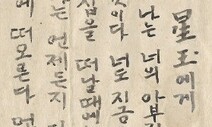 星玉에게
나는 너의 아부지
것이다 너도 지금
집을 떠날때에
는 언제든지
떠오른다